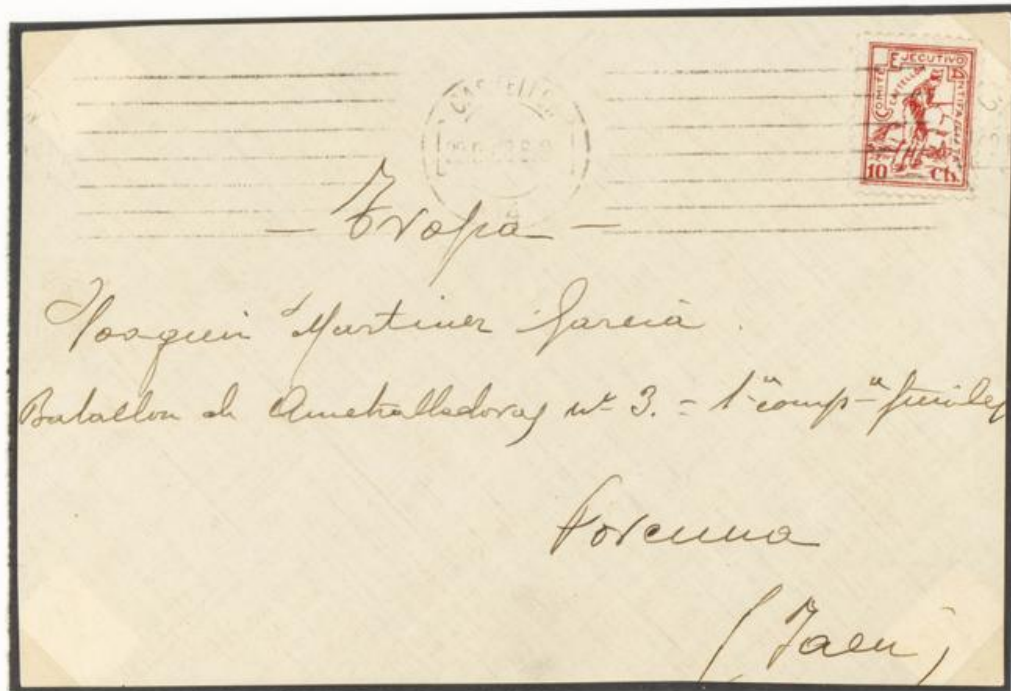 CASTELLON
COMITÉ EJECUTIVO ANTIFASCISTA
CASTELLON
10 Cts.
— Tropa —
Joaquin Martinez Garcia.
Batallon de Ametralladoras nº 3. = 1ª compª fusiles
Porcuna
(Jaen)